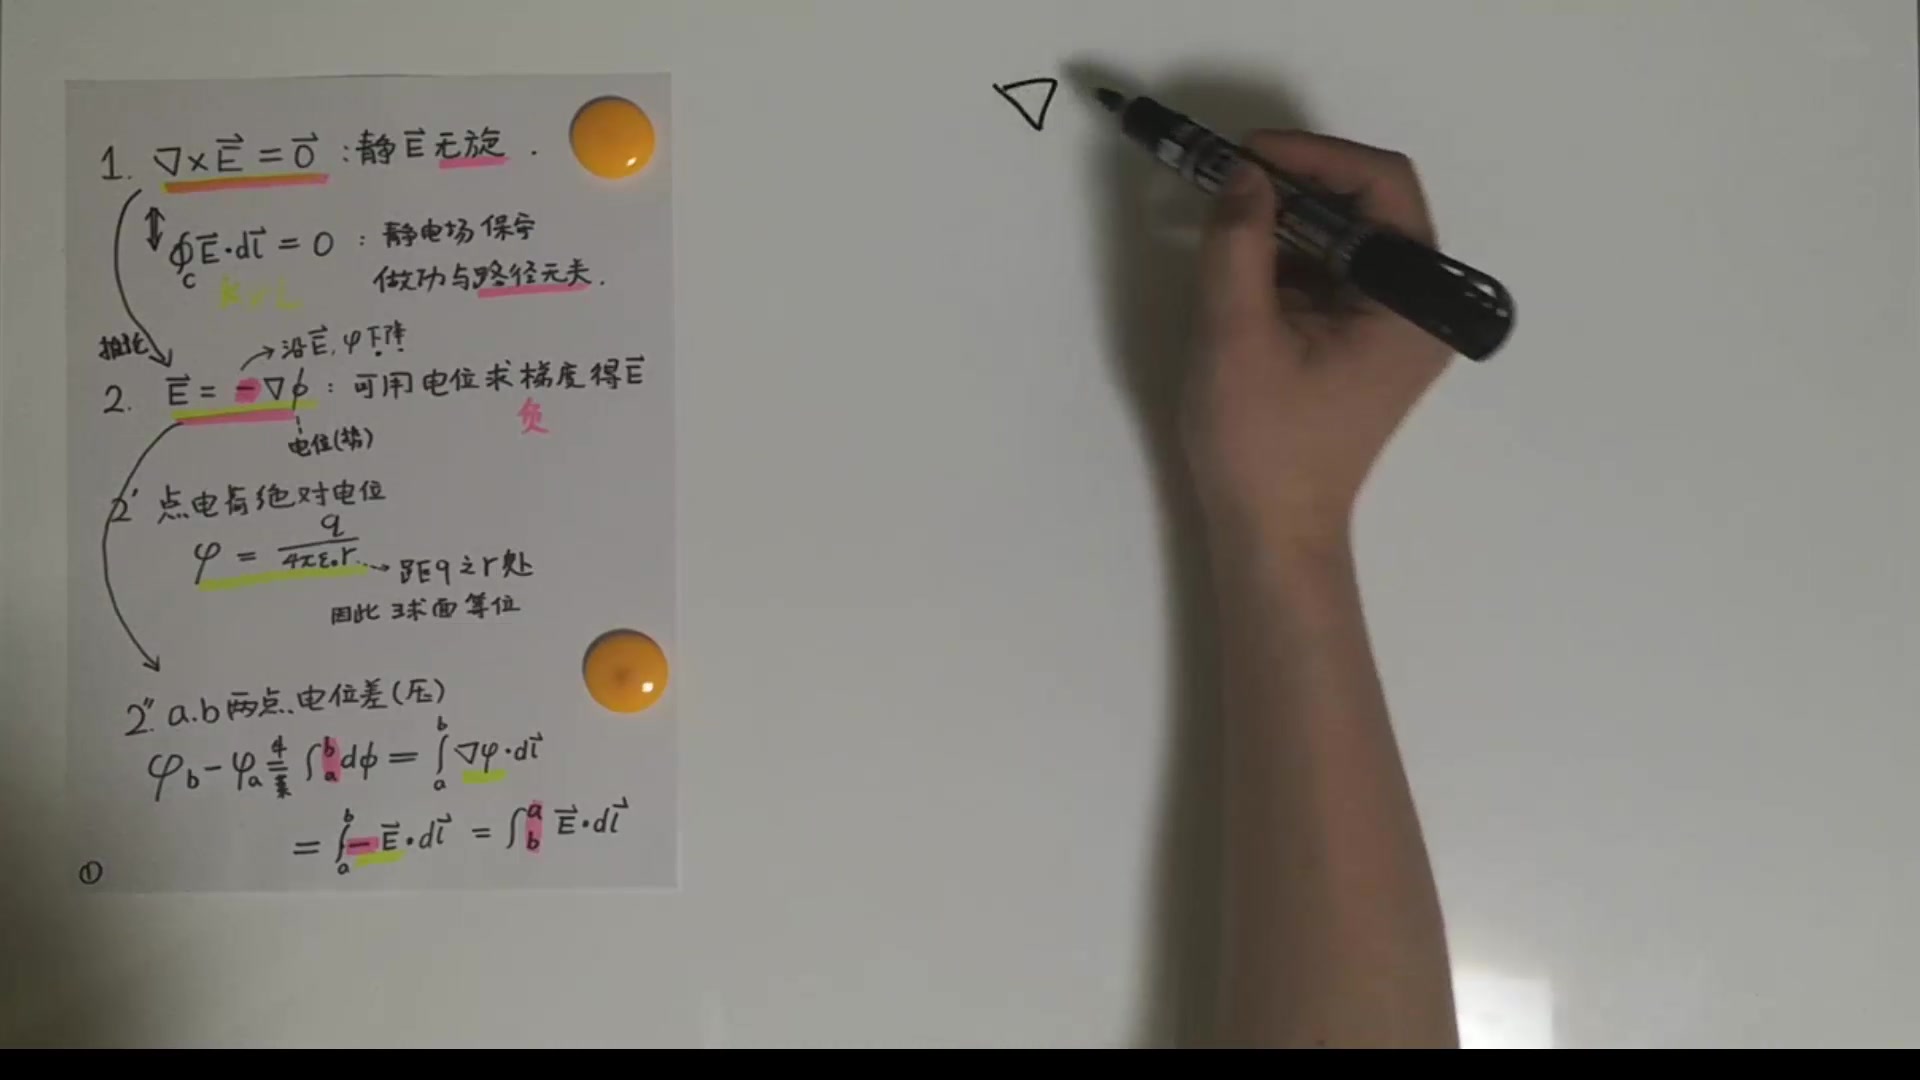 1. ∇×E⃗ = 0⃗ : 静E⃗ 无旋 .
∮_C E⃗·dl⃗ = 0 : 静电场保守
做功与路径无关.
KVL
推论
沿E⃗, φ下降
2. E⃗ = -∇ϕ : 可用电位求梯度得E⃗
负
电位(势)
2' 点电荷绝对电位
φ = q/(4πε₀r) → 距q之r处
因此球面等位
2''. a.b两点.电位差(压)
φ_b - φ_a = ∫_a^b dϕ = ∫_a^b ∇φ·dl⃗
= ∫_a^b -E⃗·dl⃗ = ∫_b^a E⃗·dl⃗
①
∇